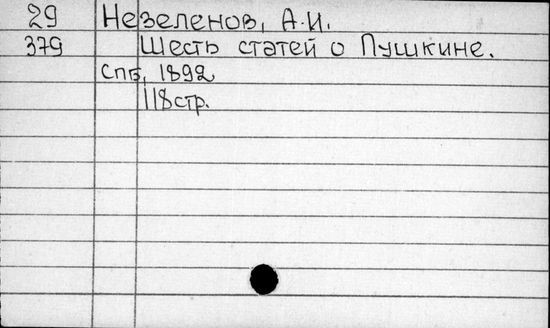 29 Незеленов, А.И.
379 Шесть статей о Пушкине.
Спб, 1892
118стр.